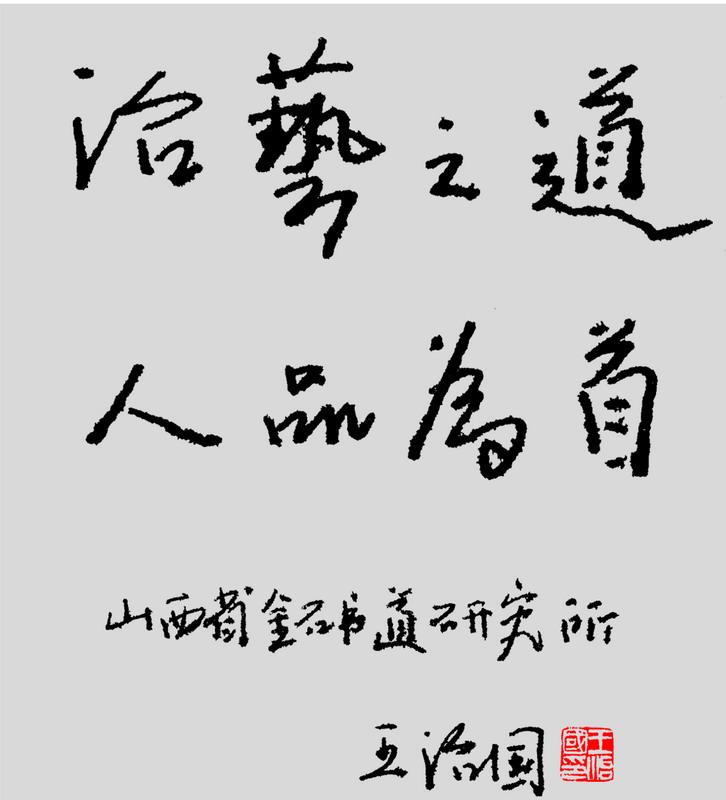 治藝之道
人品為首
山西省金石书道研究所
王治国
王治國印